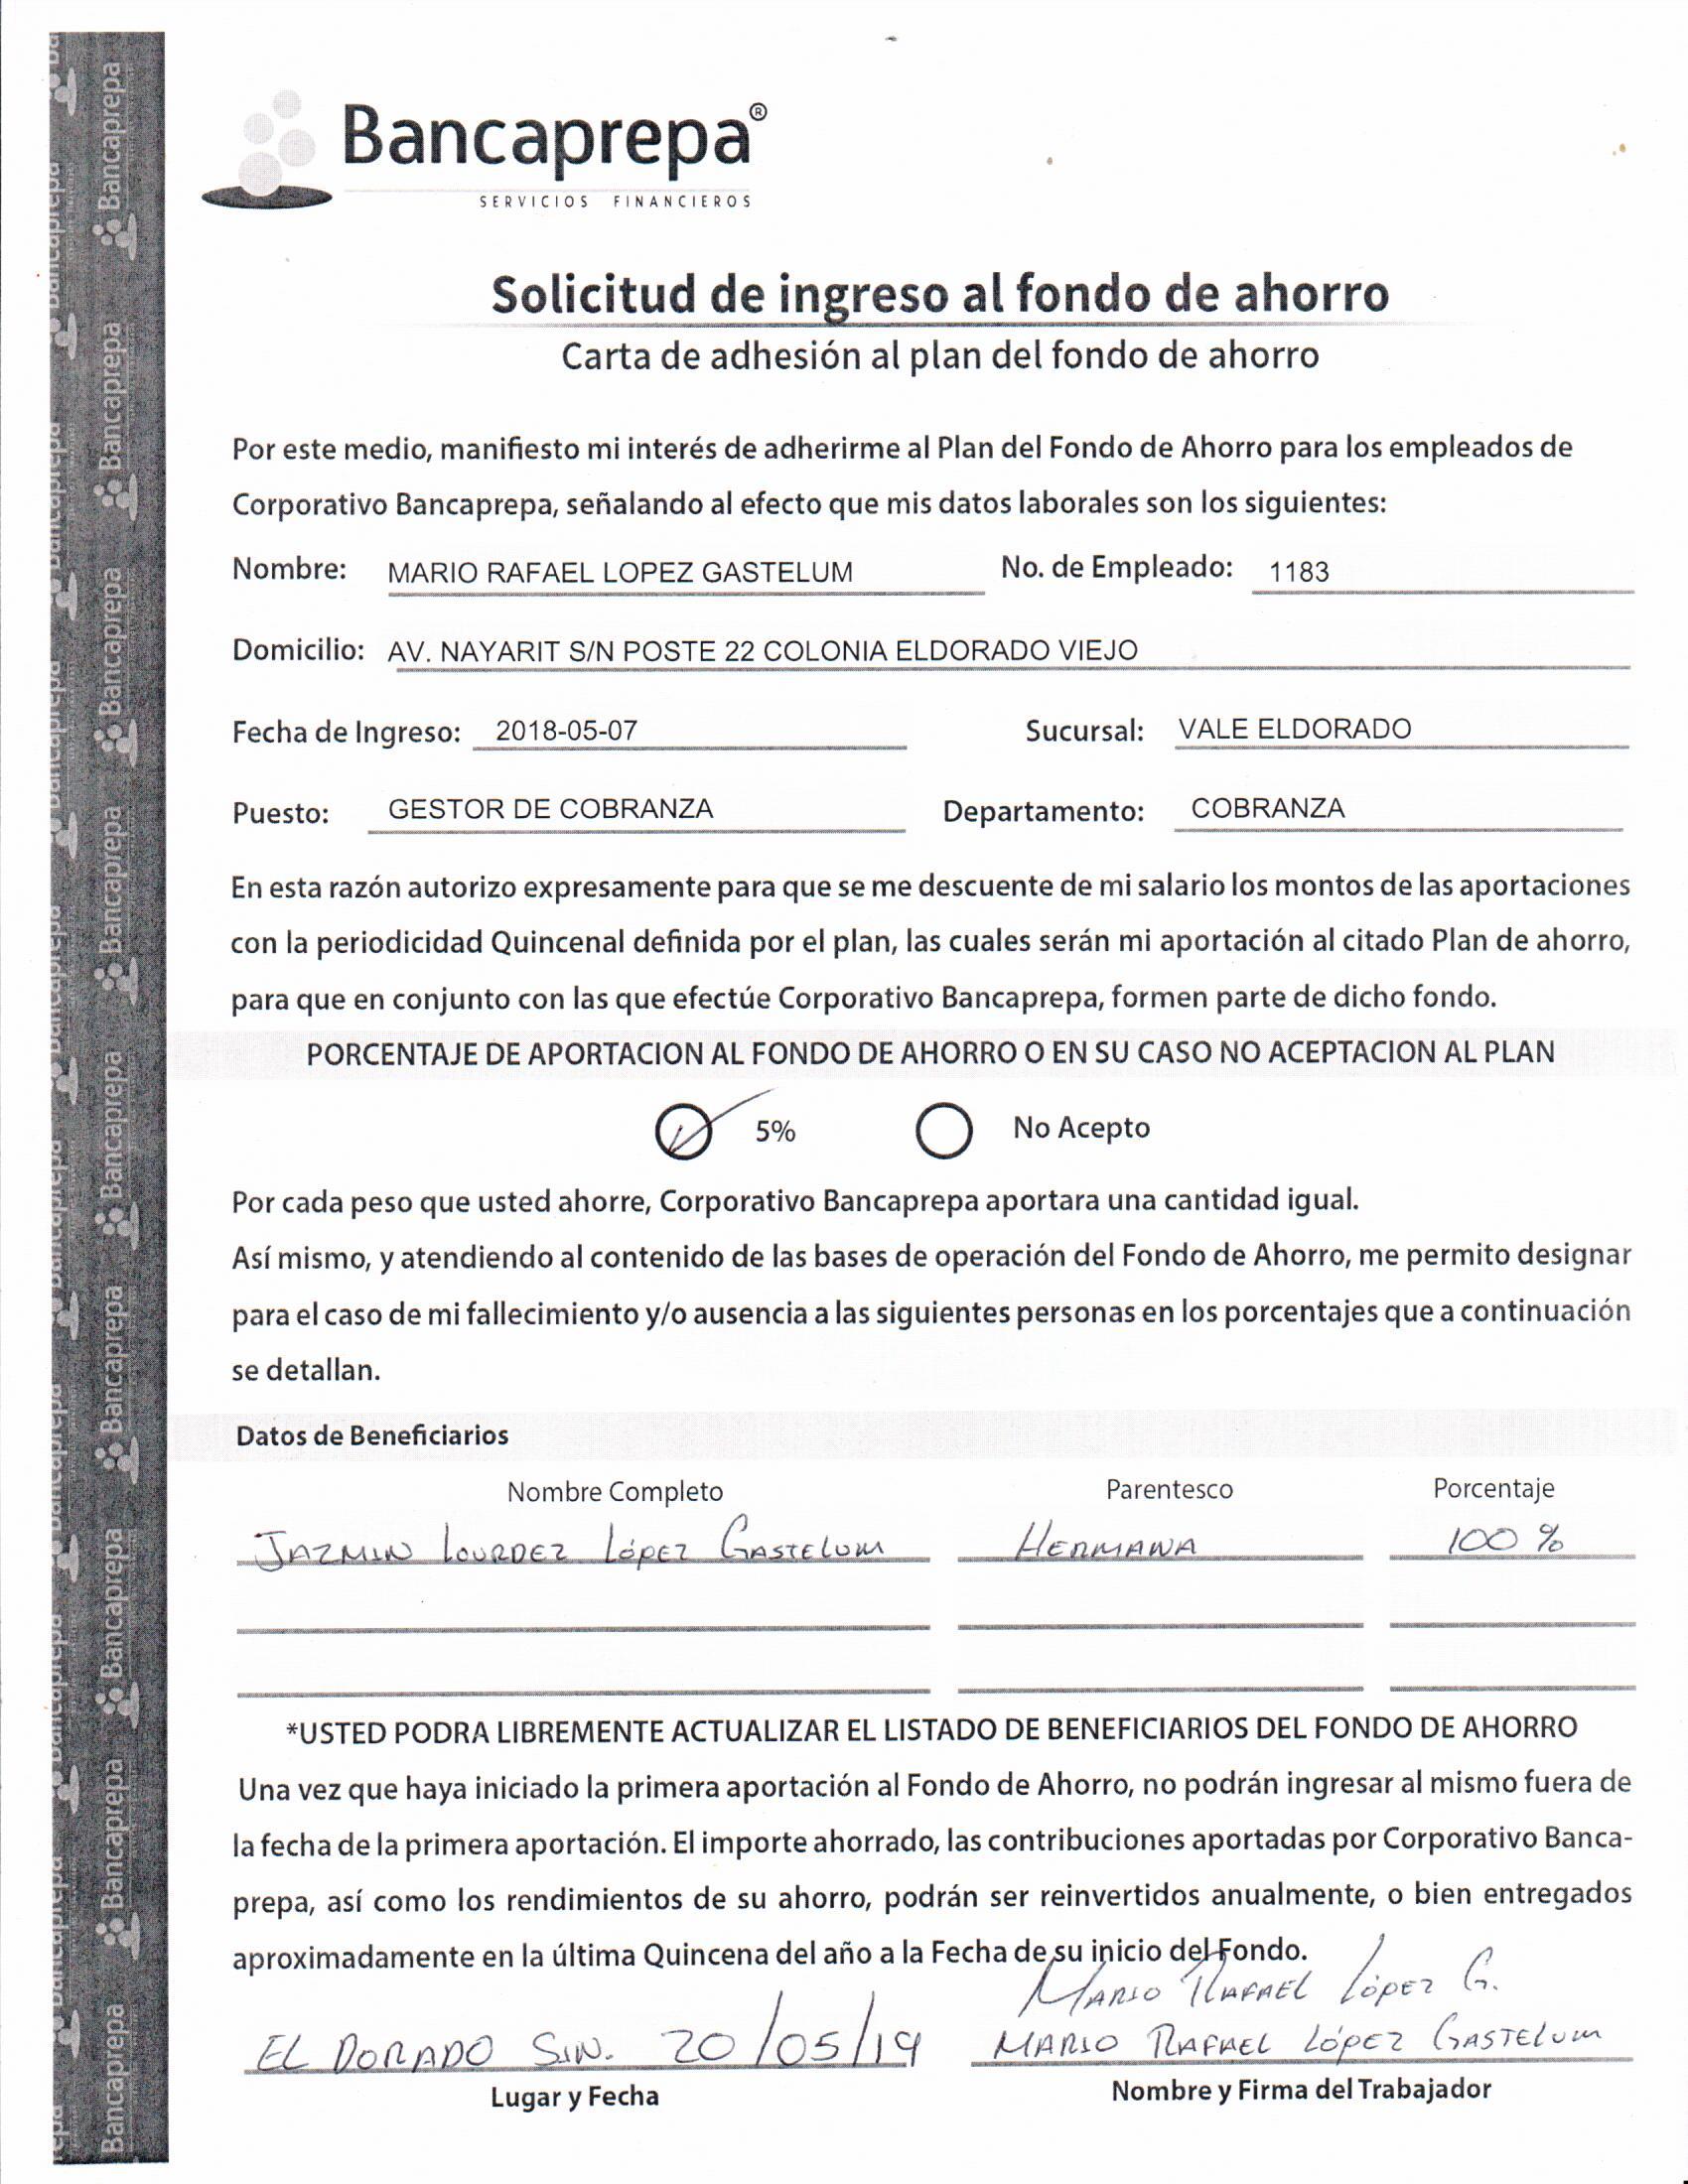 Bancaprepa®
SERVICIOS FINANCIEROS
Solicitud de ingreso al fondo de ahorro
Carta de adhesión al plan del fondo de ahorro
Por este medio, manifiesto mi interés de adherirme al Plan del Fondo de Ahorro para los empleados de
Corporativo Bancaprepa, señalando al efecto que mis datos laborales son los siguientes:
Nombre: MARIO RAFAEL LOPEZ GASTELUM No. de Empleado: 1183
Domicilio: AV. NAYARIT S/N POSTE 22 COLONIA ELDORADO VIEJO
Fecha de Ingreso: 2018-05-07 Sucursal: VALE ELDORADO
Puesto: GESTOR DE COBRANZA Departamento: COBRANZA
En esta razón autorizo expresamente para que se me descuente de mi salario los montos de las aportaciones
con la periodicidad Quincenal definida por el plan, las cuales serán mi aportación al citado Plan de ahorro,
para que en conjunto con las que efectúe Corporativo Bancaprepa, formen parte de dicho fondo.
PORCENTAJE DE APORTACION AL FONDO DE AHORRO O EN SU CASO NO ACEPTACION AL PLAN
5% No Acepto
Por cada peso que usted ahorre, Corporativo Bancaprepa aportara una cantidad igual.
Así mismo, y atendiendo al contenido de las bases de operación del Fondo de Ahorro, me permito designar
para el caso de mi fallecimiento y/o ausencia a las siguientes personas en los porcentajes que a continuación
se detallan.
Datos de Beneficiarios
Nombre Completo Parentesco Porcentaje
JAZMIN LOURDEZ LÓPEZ GASTELUM HERMANA 100 %
*USTED PODRA LIBREMENTE ACTUALIZAR EL LISTADO DE BENEFICIARIOS DEL FONDO DE AHORRO
Una vez que haya iniciado la primera aportación al Fondo de Ahorro, no podrán ingresar al mismo fuera de
la fecha de la primera aportación. El importe ahorrado, las contribuciones aportadas por Corporativo Banca-
prepa, así como los rendimientos de su ahorro, podrán ser reinvertidos anualmente, o bien entregados
aproximadamente en la última Quincena del año a la Fecha de su inicio del Fondo.
MARIO RAFAEL LÓPEZ G.
EL DORADO SIN. 20/05/19 MARIO RAFAEL LÓPEZ GASTELUM
Lugar y Fecha Nombre y Firma del Trabajador